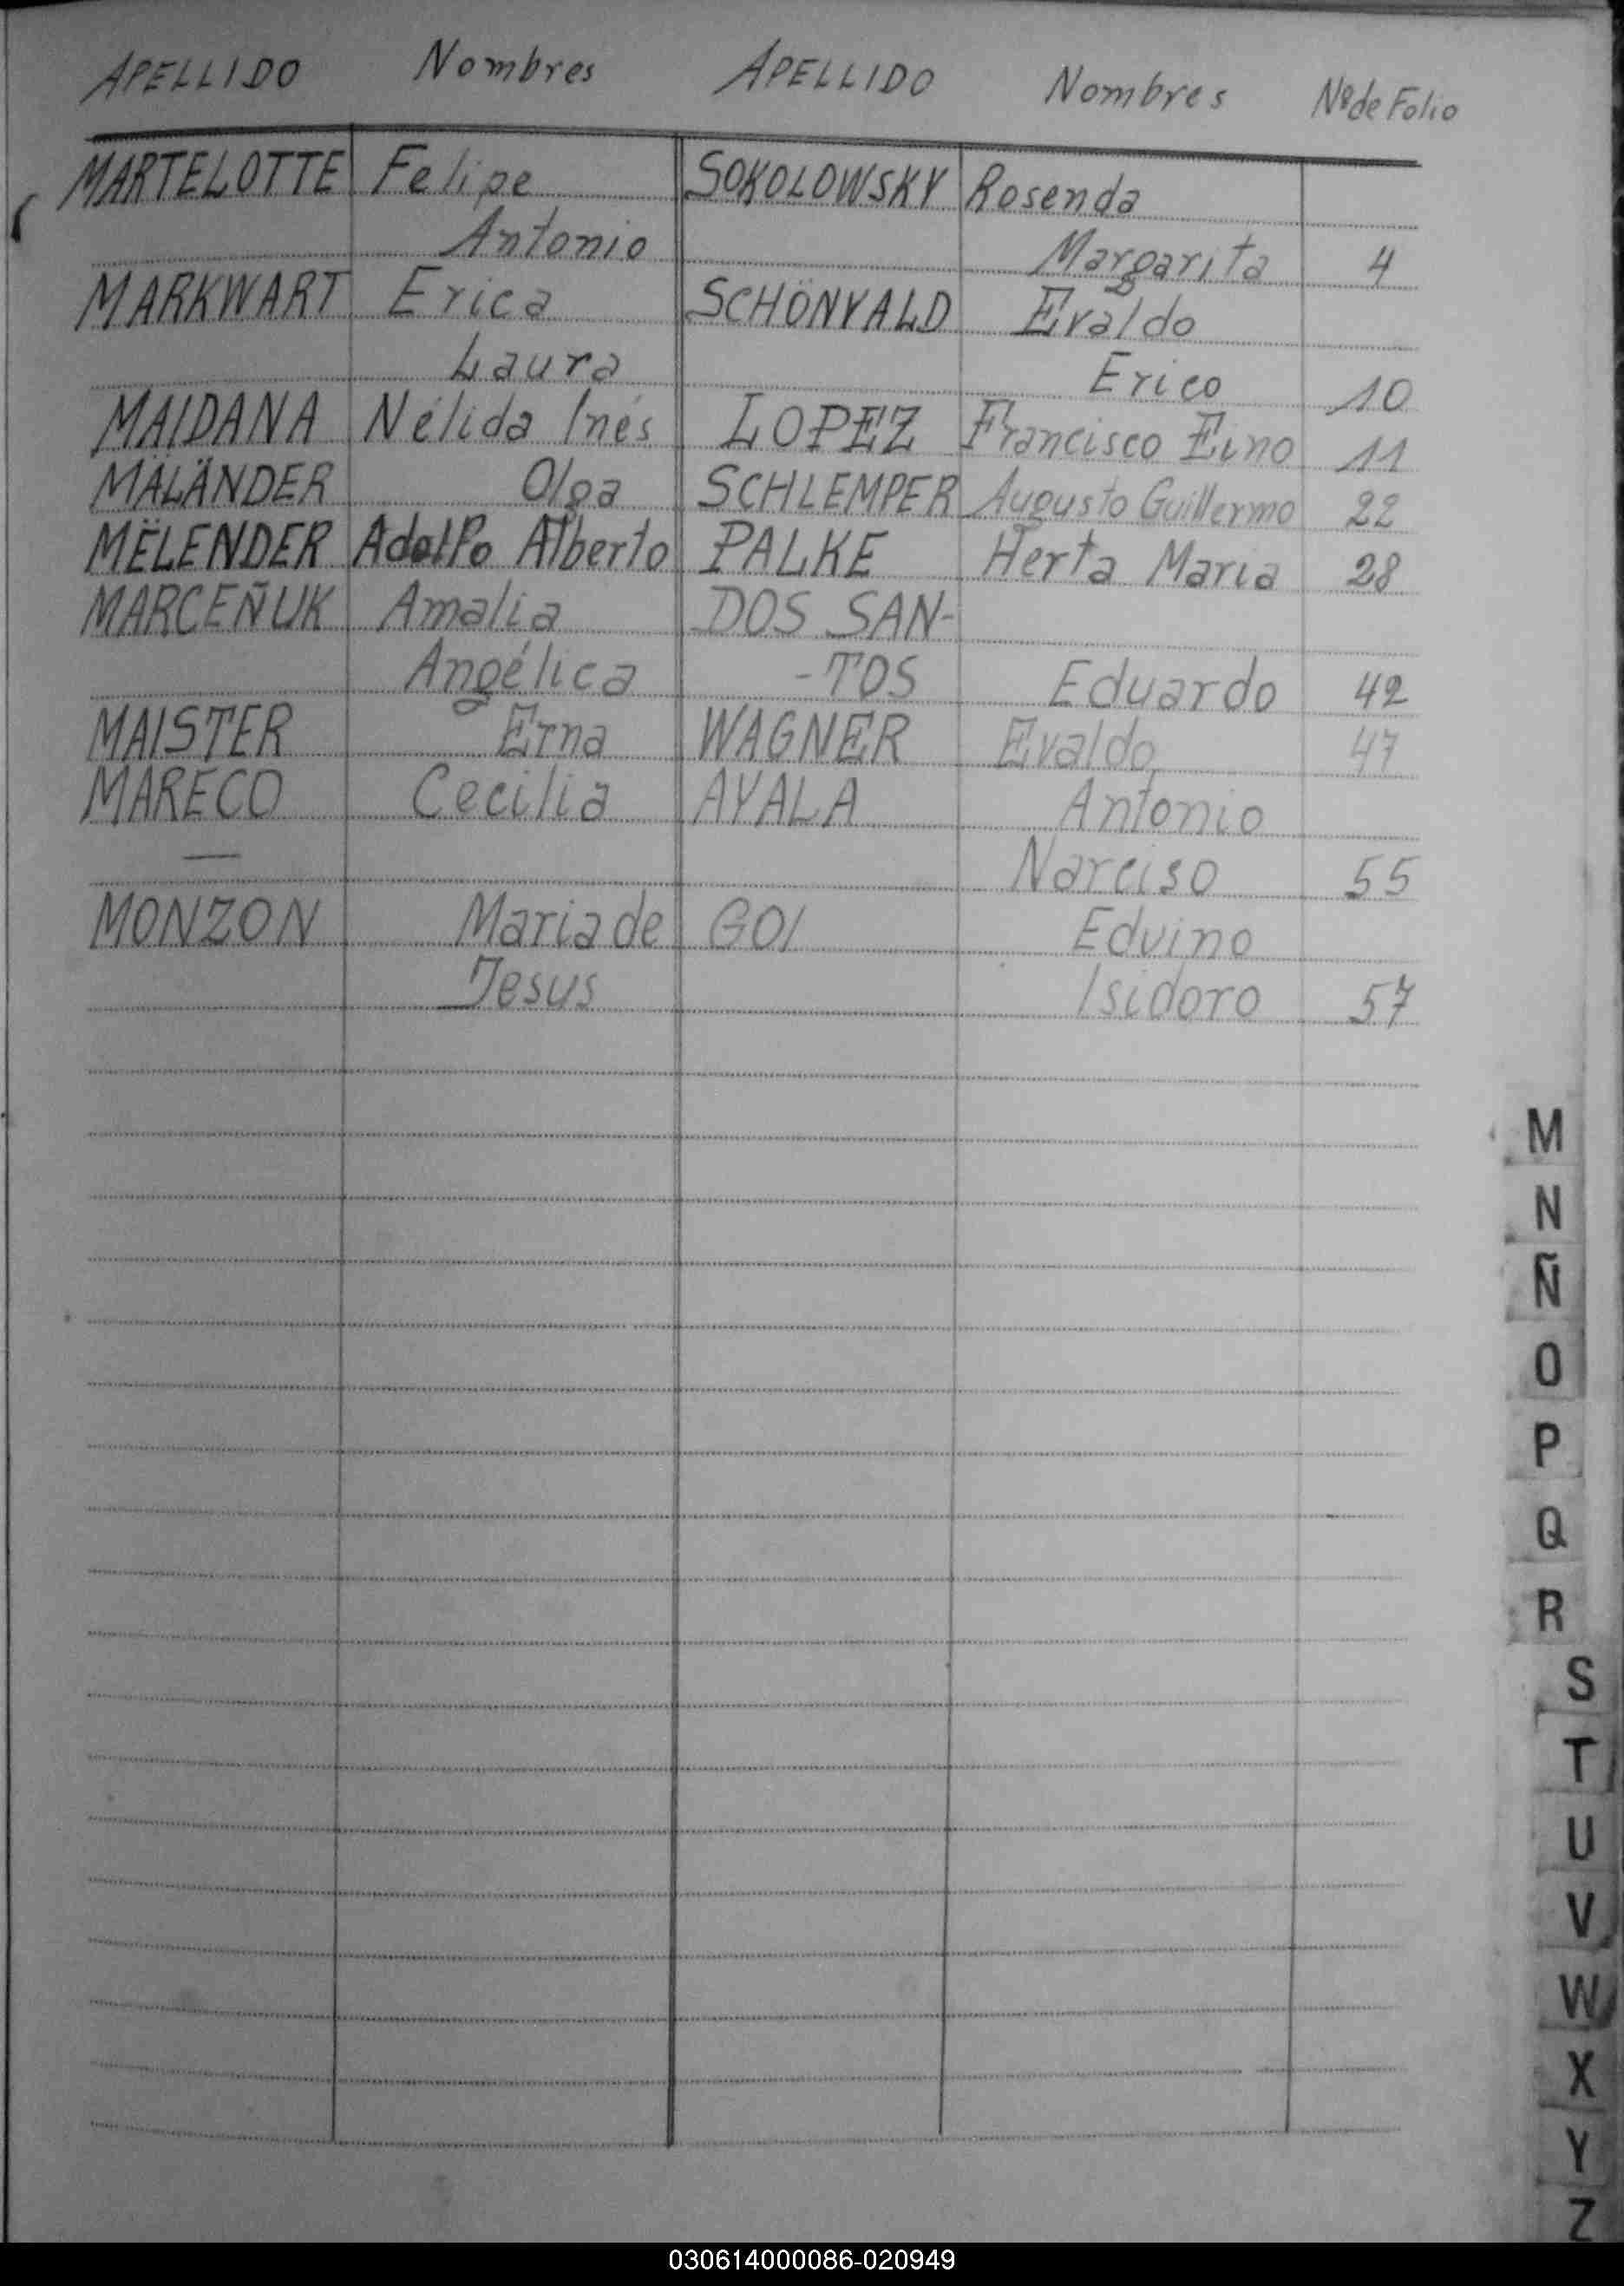 APELLIDO Nombres APELLIDO Nombres Nº de Folio
MARTELOTTE Felipe SOKOLOWSKY Rosenda
Antonio Margarita 4
MARKWART Erica SCHÖNVALD Evaldo
Laura Erico 10
MAIDANA Nélida Inés LOPEZ Francisco Eino 11
MÄLÄNDER Olga SCHLEMPER Augusto Guillermo 22
MËLENDER Adolfo Alberto PALKE Herta Maria 28
MARCEÑUK Amalia DOS SAN-
Angélica -TOS Eduardo 42
MAISTER Erna WAGNER Evaldo 47
MARECO Cecilia AYALA Antonio
— Narciso 55
MONZON Maria de GOI Edvino
Jesus Isidoro 57
M
N
Ñ
O
P
Q
R
S
T
U
V
W
X
Y
Z
030614000086-020949